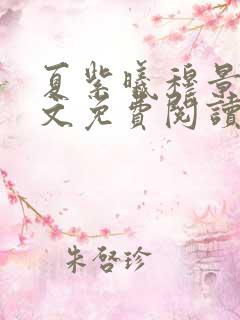 夏紫曦穆景
文免費閱讀
朱啓珍